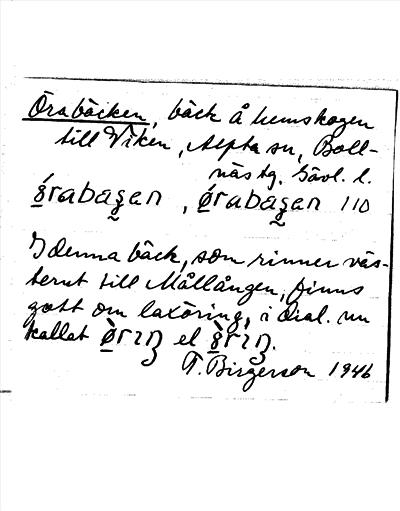 Örabäcken, bäck å hemskogen
till Viken, Alfta sn, Boll-
näs tg. Gävl. l.
110
I denna bäck, som rinner väs-
terut till Mållången, finns
gott om laxöring, i dial. nu
kallat el
T. Birgerson 1946